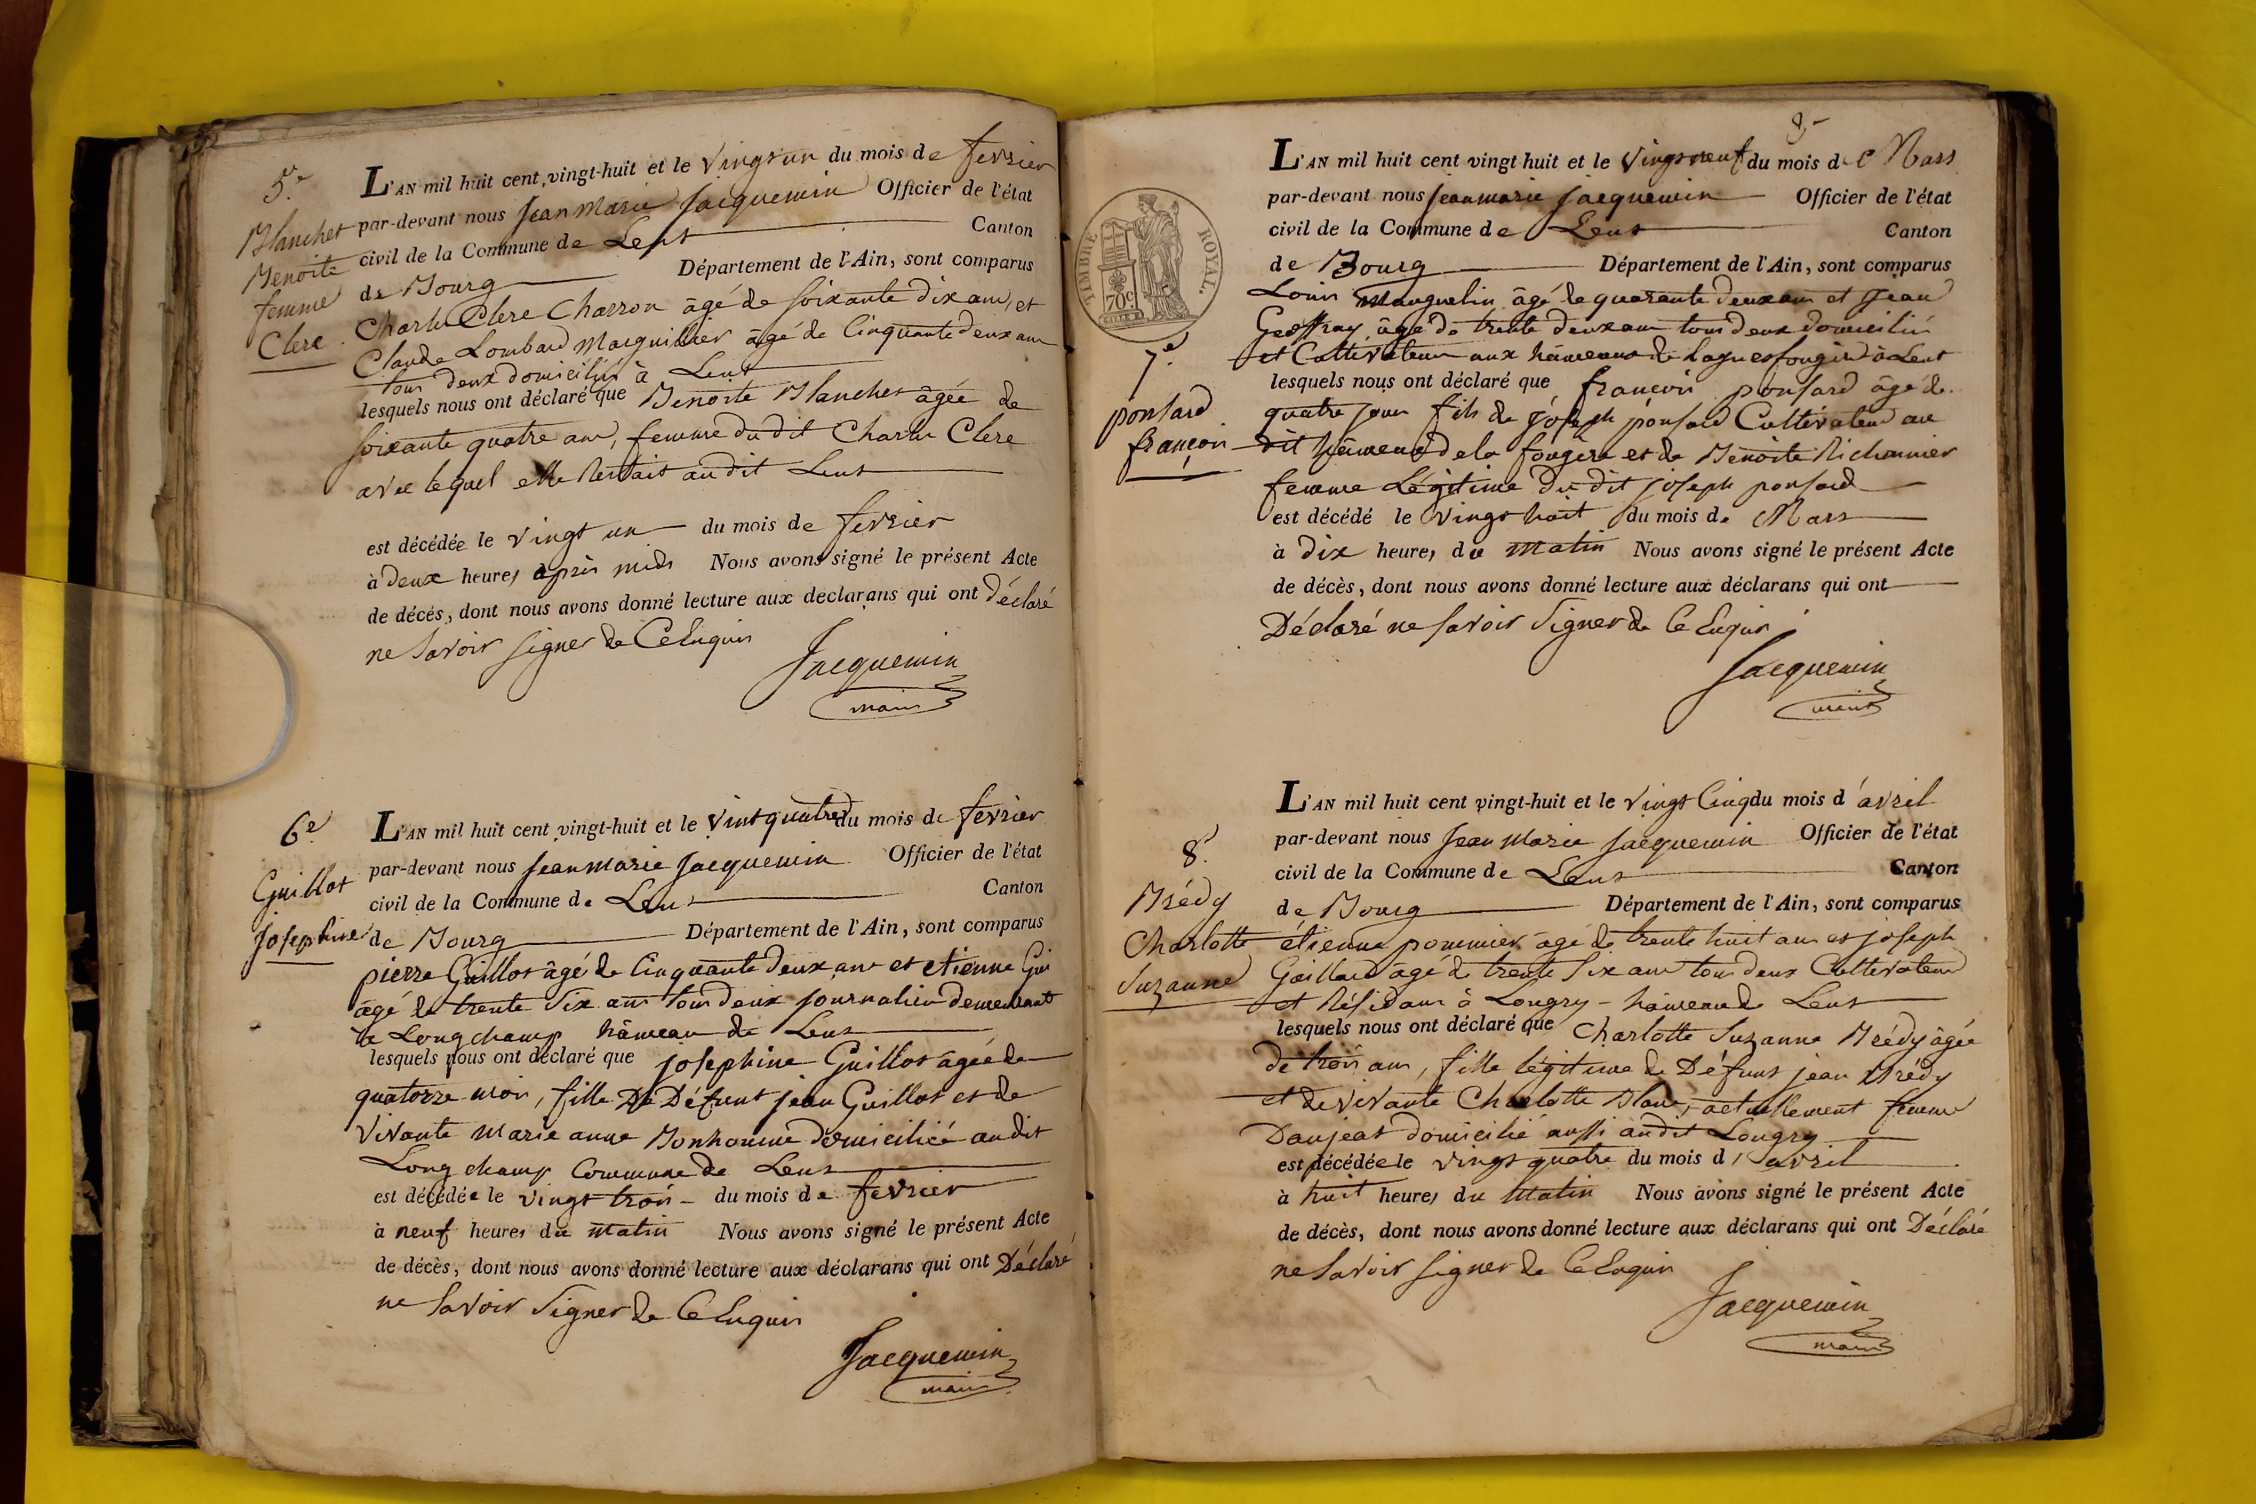 5e
Blanchet
Benoite
femme
Clerc
L'AN mil huit cent vingt-huit et le Vingt un du mois de fevrier
par-devant nous Jean Marie Jacquemin Officier de l'état
civil de la Commune de Lent Canton
de Bourg Département de l'Ain, sont comparus
Charles Clerc Charron âgé de soixante dix ans, et
Claude Lombard Marguillier âgé de Cinquante deux ans
tous deux domiciliés à Lent
lesquels nous ont déclaré que Benoite Blanchet âgée de
soixante quatre ans, femme du dit Charles Clerc
avec lequel elle Restait audit Lent
est décédée le vingt un du mois de fevrier
à deux heures après midi Nous avons signé le présent Acte
de décès, dont nous avons donné lecture aux declarans qui ont déclaré
ne Savoir signer de Ce Enquis
Jacquemin
maire
6e
Guillot
josephine
L'AN mil huit cent vingt-huit et le Vint quatre du mois de fevrier
par-devant nous Jean Marie Jacquemin Officier de l'état
civil de la Commune de Lent Canton
de Bourg Département de l'Ain, sont comparus
pierre Guillot âgé de Cinquante deux ans et etienne Gui
âgé de trente Six ans tous deux journalier demeurant
à Longchamp hâmeau de Lent
lesquels nous ont déclaré que josephine Guillot âgée de
quatorze mois, fille De Défunt jean Guillot et de
Vivante Marie anne Bonhomme domiciliée audit
Long champ Commune de Lent
est décédée le vingt trois du mois de fevrier
à neuf heures du Matin Nous avons signé le présent Acte
de décès, dont nous avons donné lecture aux déclarans qui ont Déclaré
ne Savoir Signer de Ce Enquis
Jacquemin
maire
TIMBRE ROYAL.
70c
7e
ponsard
françois
L'AN mil huit cent vingt huit et le Vingt neuf du mois de Mars
par-devant nous Jean marie Jacquemin Officier de l'état
civil de la Commune de Lent Canton
de Bourg Département de l'Ain, sont comparus
Louis Manguelin âgé de quarante deux ans et Jean
Geoffray âgé de trente deux ans tous deux domiciliés
et Cultivateurs aux hâmeaux de à Lent
lesquels nous ont déclaré que françois ponsard âgé de
quatre jours fils de joseph ponsard Cultivateur au
dit hâmeau de la fougère et de Benoite Richonnier
femme Légitime du dit joseph ponsard
est décédé le vingt huit du mois de Mars
à dix heures du Matin Nous avons signé le présent Acte
de décès, dont nous avons donné lecture aux déclarans qui ont
Déclaré ne savoir Signer de Ce Enquis
Jacquemin
maire
8e
Brédy
Charlotte
Suzanne
L'AN mil huit cent vingt-huit et le vingt Cinq du mois d'avril
par-devant nous Jean Marie Jacquemin Officier de l'état
civil de la Commune de Lent Canton
de Bourg Département de l'Ain, sont comparus
étienne pommier âgé de trente huit ans et joseph
Gaillard âgé de trente Six ans tous deux Cultivateurs
et Résidans à Longry - hâmeau de Lent
lesquels nous ont déclaré que Charlotte Suzanne Brédy âgée
de trois ans, fille légitime de Défunt jean Brédy
et de vivante Charlotte Blanc, actuellement femme
Danjeat domicilié aussi audit Longry
est décédée le vingt quatre du mois d'avril
à huit heures du Matin Nous avons signé le présent Acte
de décès, dont nous avons donné lecture aux déclarans qui ont Déclaré
ne Savoir signer de Ce Enquis
Jacquemin
maire